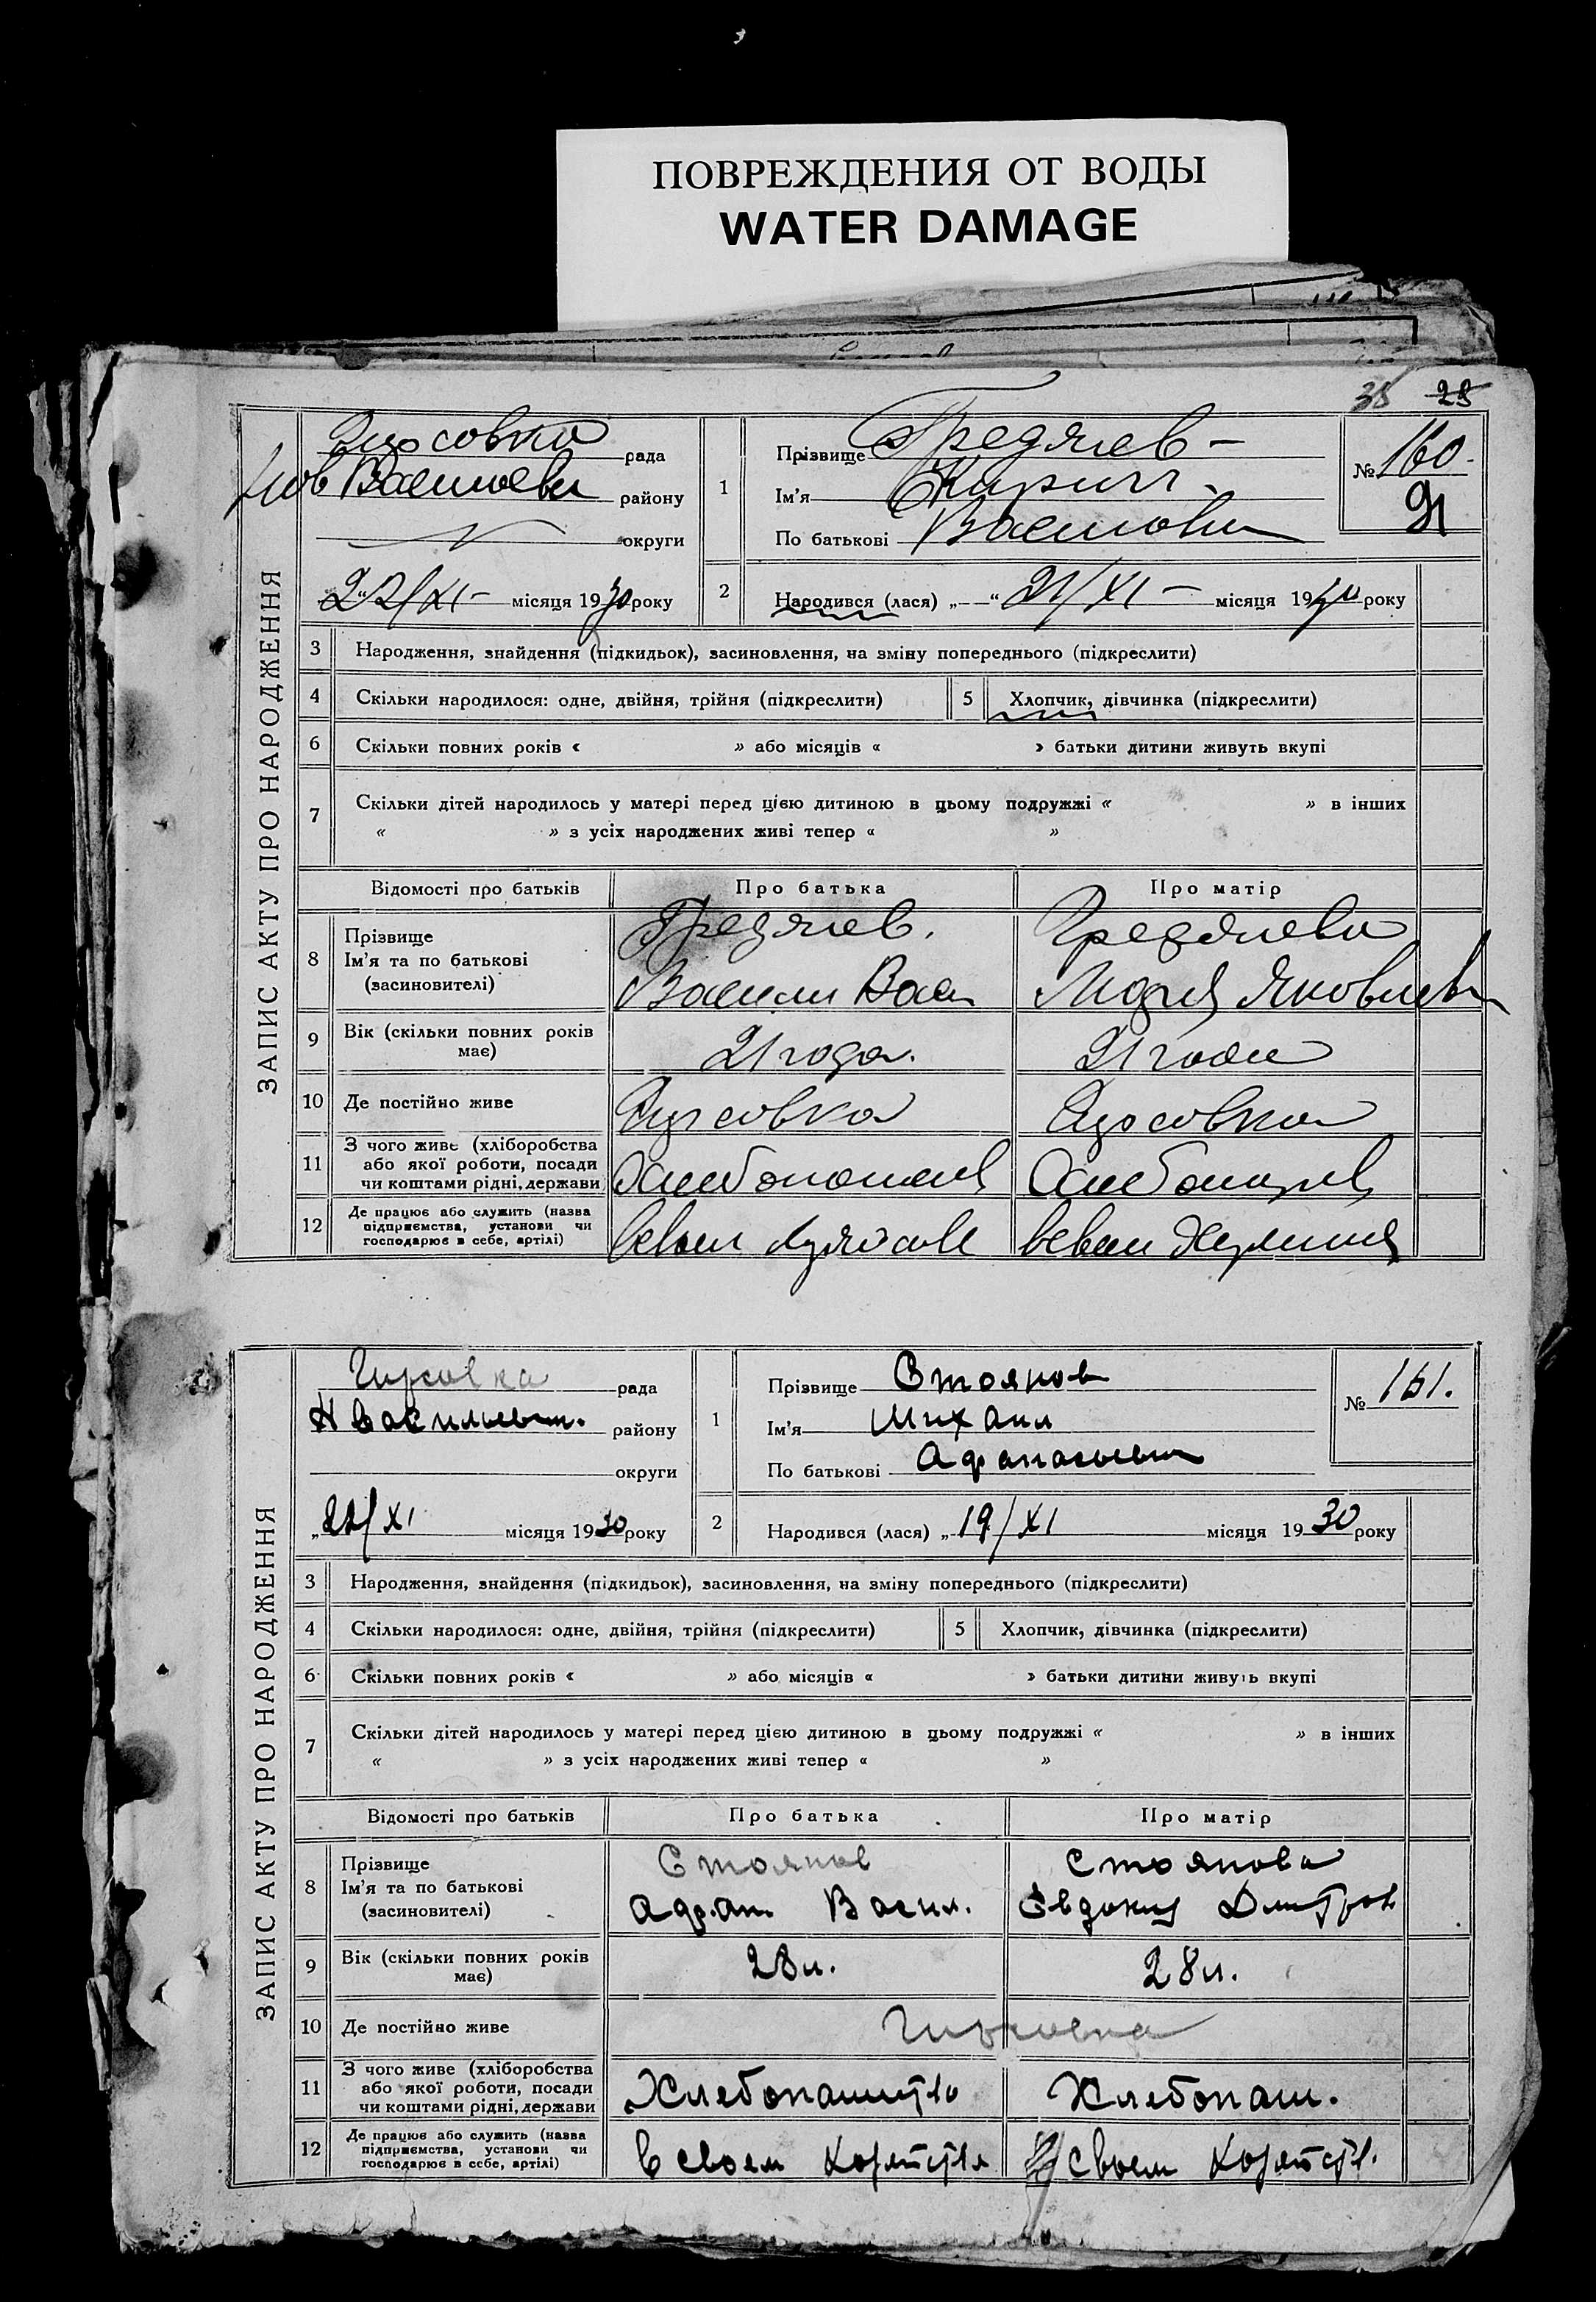 ПОВРЕЖДЕНИЯ ОТ ВОДЫ
WATER DAMAGE
38 28
ЗАПИС АКТУ ПРО НАРОДЖЕННЯ
рада
району
округи
22/XI - місяця 1930 року
1 Прізвище
Ім'я
По батькові
№ 160.
2 Народився (лася) „—“ 21/XI — місяця 19 року
3 Народження, знайдення (підкидьок), засиновлення, на зміну попереднього (підкреслити)
4 Скільки народилося: одне, двійня, трійня (підкреслити) 5 Хлопчик, дівчинка (підкреслити)
6 Скільки повних років « » або місяців « » батьки дитини живуть вкупі
7 Скільки дітей народилось у матері перед цією дитиною в цьому подружжі « » в інших
« » з усіх народжених живі тепер « »
Відомості про батьків Про батька Про матір
8 Прізвище
Ім'я та по батькові
(засиновителі)
Васили Васи Лидия Яковлев
9 Вік (скільки повних років має) 21 года. 21 года
10 Де постійно живе
11 З чого живе (хліборобства
або якої роботи, посади
чи коштами рідні, держави
12 Де працює або служить (назва
підприємства, установи чи
господарює в себе, артілі)
ЗАПИС АКТУ ПРО НАРОДЖЕННЯ
Гирсовка рада
Н Васильевск. району
округи
„22/XI місяця 1930 року
1 Прізвище Стоянов
Ім'я Михаил
По батькові Афанасьевич
№ 161.
2 Народився (лася) „19/XI місяця 1930 року
3 Народження, знайдення (підкидьок), засиновлення, на зміну попереднього (підкреслити)
4 Скільки народилося: одне, двійня, трійня (підкреслити) 5 Хлопчик, дівчинка (підкреслити)
6 Скільки повних років « » або місяців « » батьки дитини живуть вкупі
7 Скільки дітей народилось у матері перед цією дитиною в цьому подружжі « » в інших
« » з усіх народжених живі тепер « »
Відомості про батьків Про батька Про матір
8 Прізвище Стоянов Стоянова
Ім'я та по батькові Афан Васил. Евдокия Дмитров
(засиновителі)
9 Вік (скільки повних років має) 28 л. 28 л.
10 Де постійно живе Гирсовка
11 З чого живе (хліборобства
або якої роботи, посади
чи коштами рідні, держави Хлебопашество Хлебопаш.
12 Де працює або служить (назва
підприємства, установи чи
господарює в себе, артілі) в своем своем